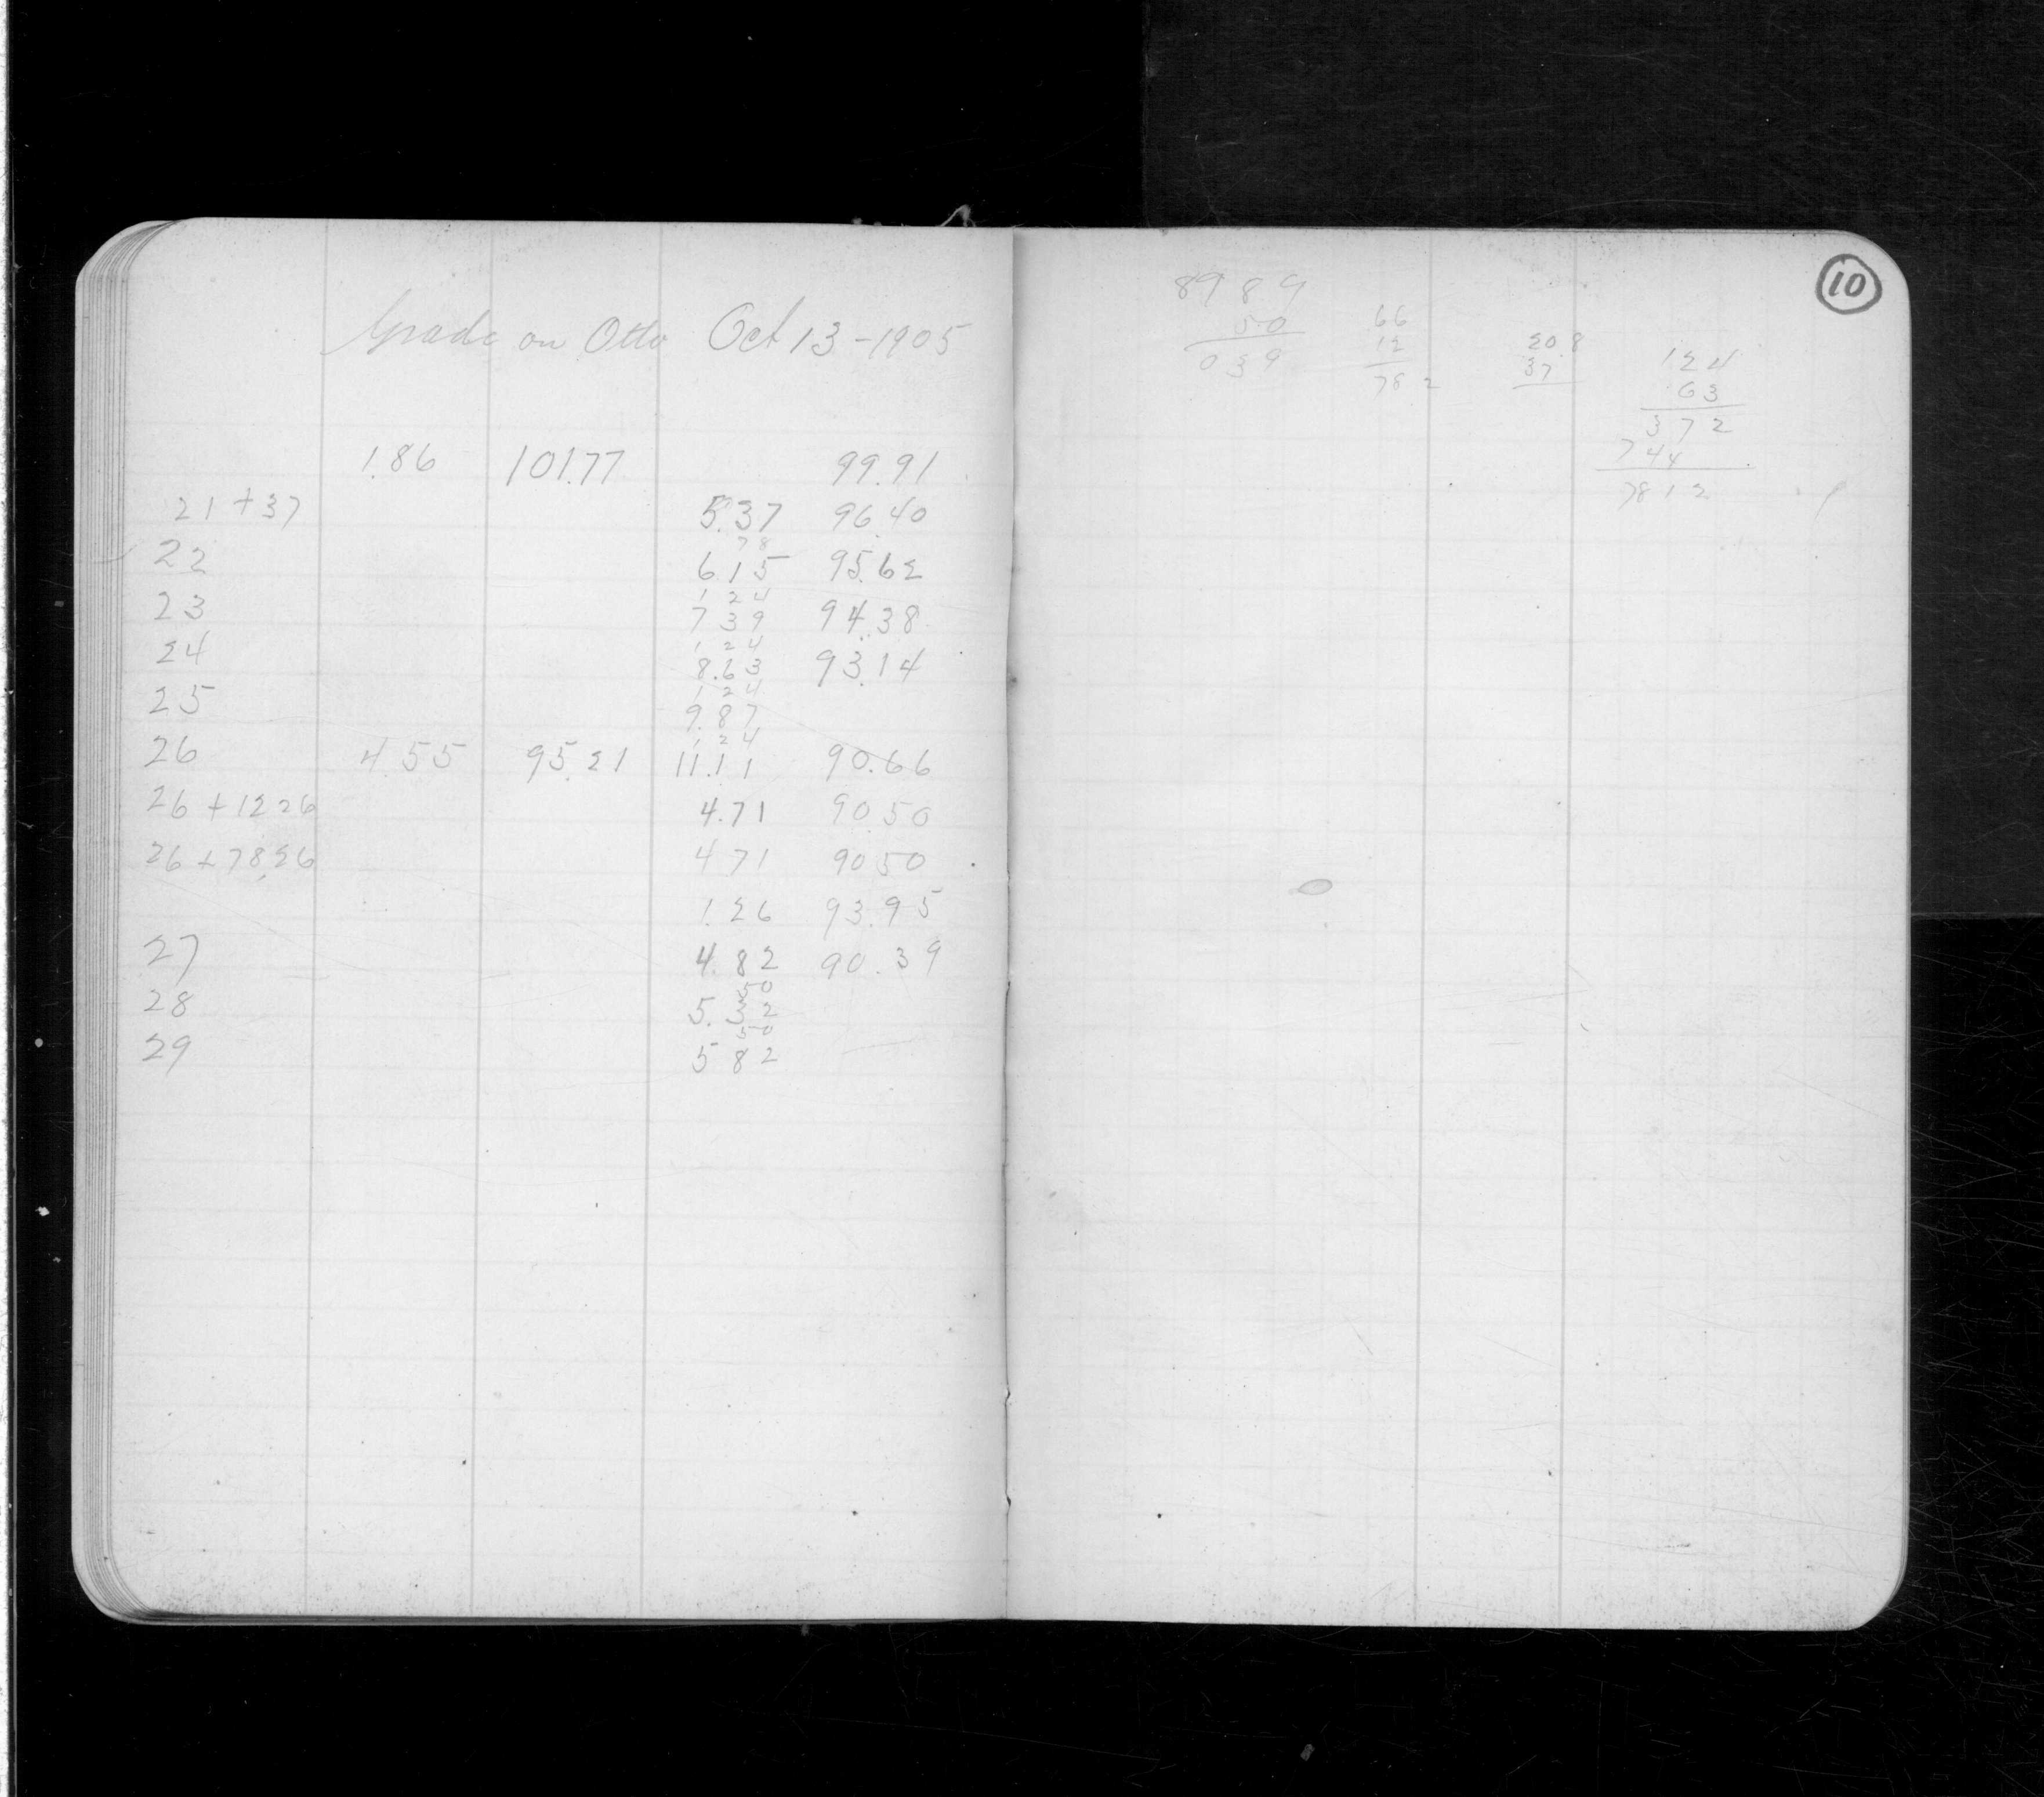 Grade on Otto Oct 13 - 1905
1.86 101.77 99.91
21 + 37 5.37 96.40
78
22 6.15 95.62
1 24
23 7 39 94.38
1 24
24 8.63 93.14
1 24
25 9.87
1 24
26 4.55 95.21 11.11 90.66
26 + 12 26 4.71 90.50
26 + 78.26 4 71 90 50
1.26 93.95
27 4.82 90.39
50
28 5.32
50
29 5 82
10
89 89
50
0 39
66
12
78 2
20.8
37
124
63
372
744
7812